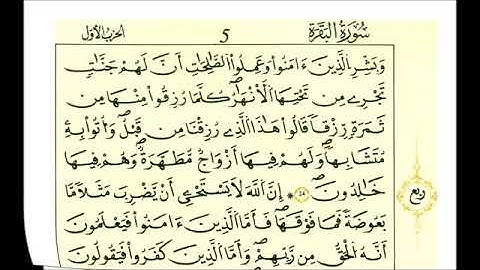 سُورَةُ البَقَرَة
5
الحزب الأول
وَبَشِّرِ الَّذِينَ ءَامَنُوا وَعَمِلُوا الصَّالِحَاتِ أَنَّ لَهُمْ جَنَّاتٍ
تَجْرِي مِن تَحْتِهَا الْأَنْهَارُ كُلَّمَا رُزِقُوا مِنْهَا مِن
ثَمَرَةٍ رِّزْقًا قَالُوا هَذَا الَّذِي رُزِقْنَا مِن قَبْلُ وَأُتُوا بِهِ
مُتَشَابِهًا وَلَهُمْ فِيهَا أَزْوَاجٌ مُّطَهَّرَةٌ وَهُمْ فِيهَا
خَالِدُونَ إِنَّ اللَّهَ لَا يَسْتَحْيِي أَنْ يَضْرِبَ مَثَلًا مَّا
ربع
بَعُوضَةً فَمَا فَوْقَهَا فَأَمَّا الَّذِينَ ءَامَنُوا فَيَعْلَمُونَ
أَنَّهُ الْحَقُّ مِن رَّبِّهِمْ وَأَمَّا الَّذِينَ كَفَرُوا فَيَقُولُونَ